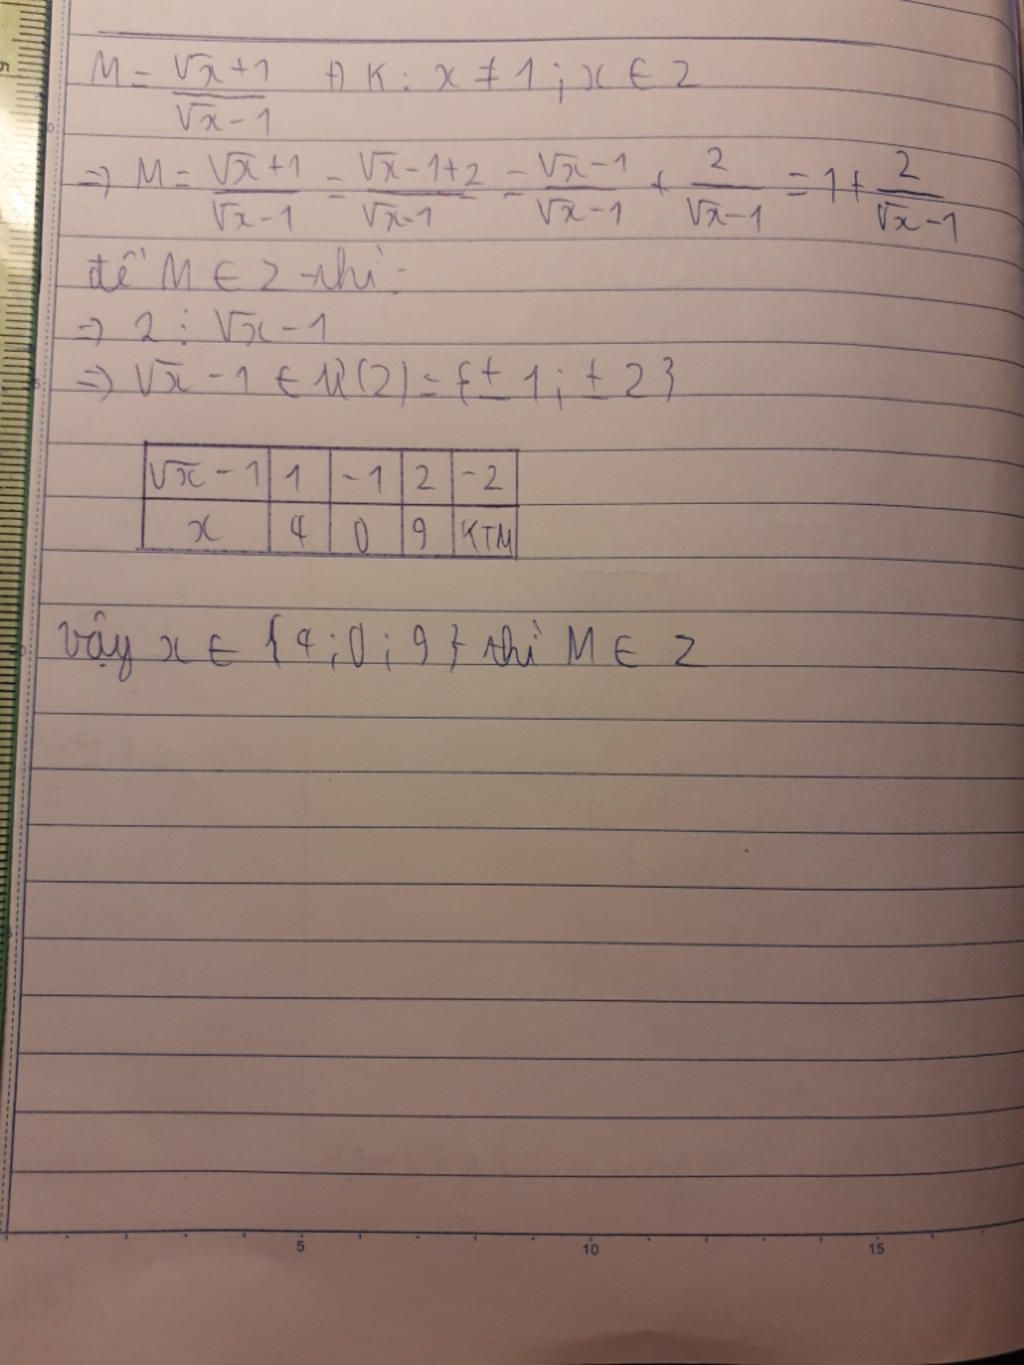 M = √x+1 / √x-1 ĐK: x ≠ 1; x ∈ Z
=> M = √x+1 / √x-1 = √x-1+2 / √x-1 = √x-1 / √x-1 + 2 / √x-1 = 1 + 2 / √x-1
để M ∈ Z thì:
=> 2 ⋮ √x-1
=> √x-1 ∈ Ư(2) = {±1; ±2}
√x-1 1 -1 2 -2
x 4 0 9 KTM
Vậy x ∈ {4;0;9} thì M ∈ Z
5 10 15